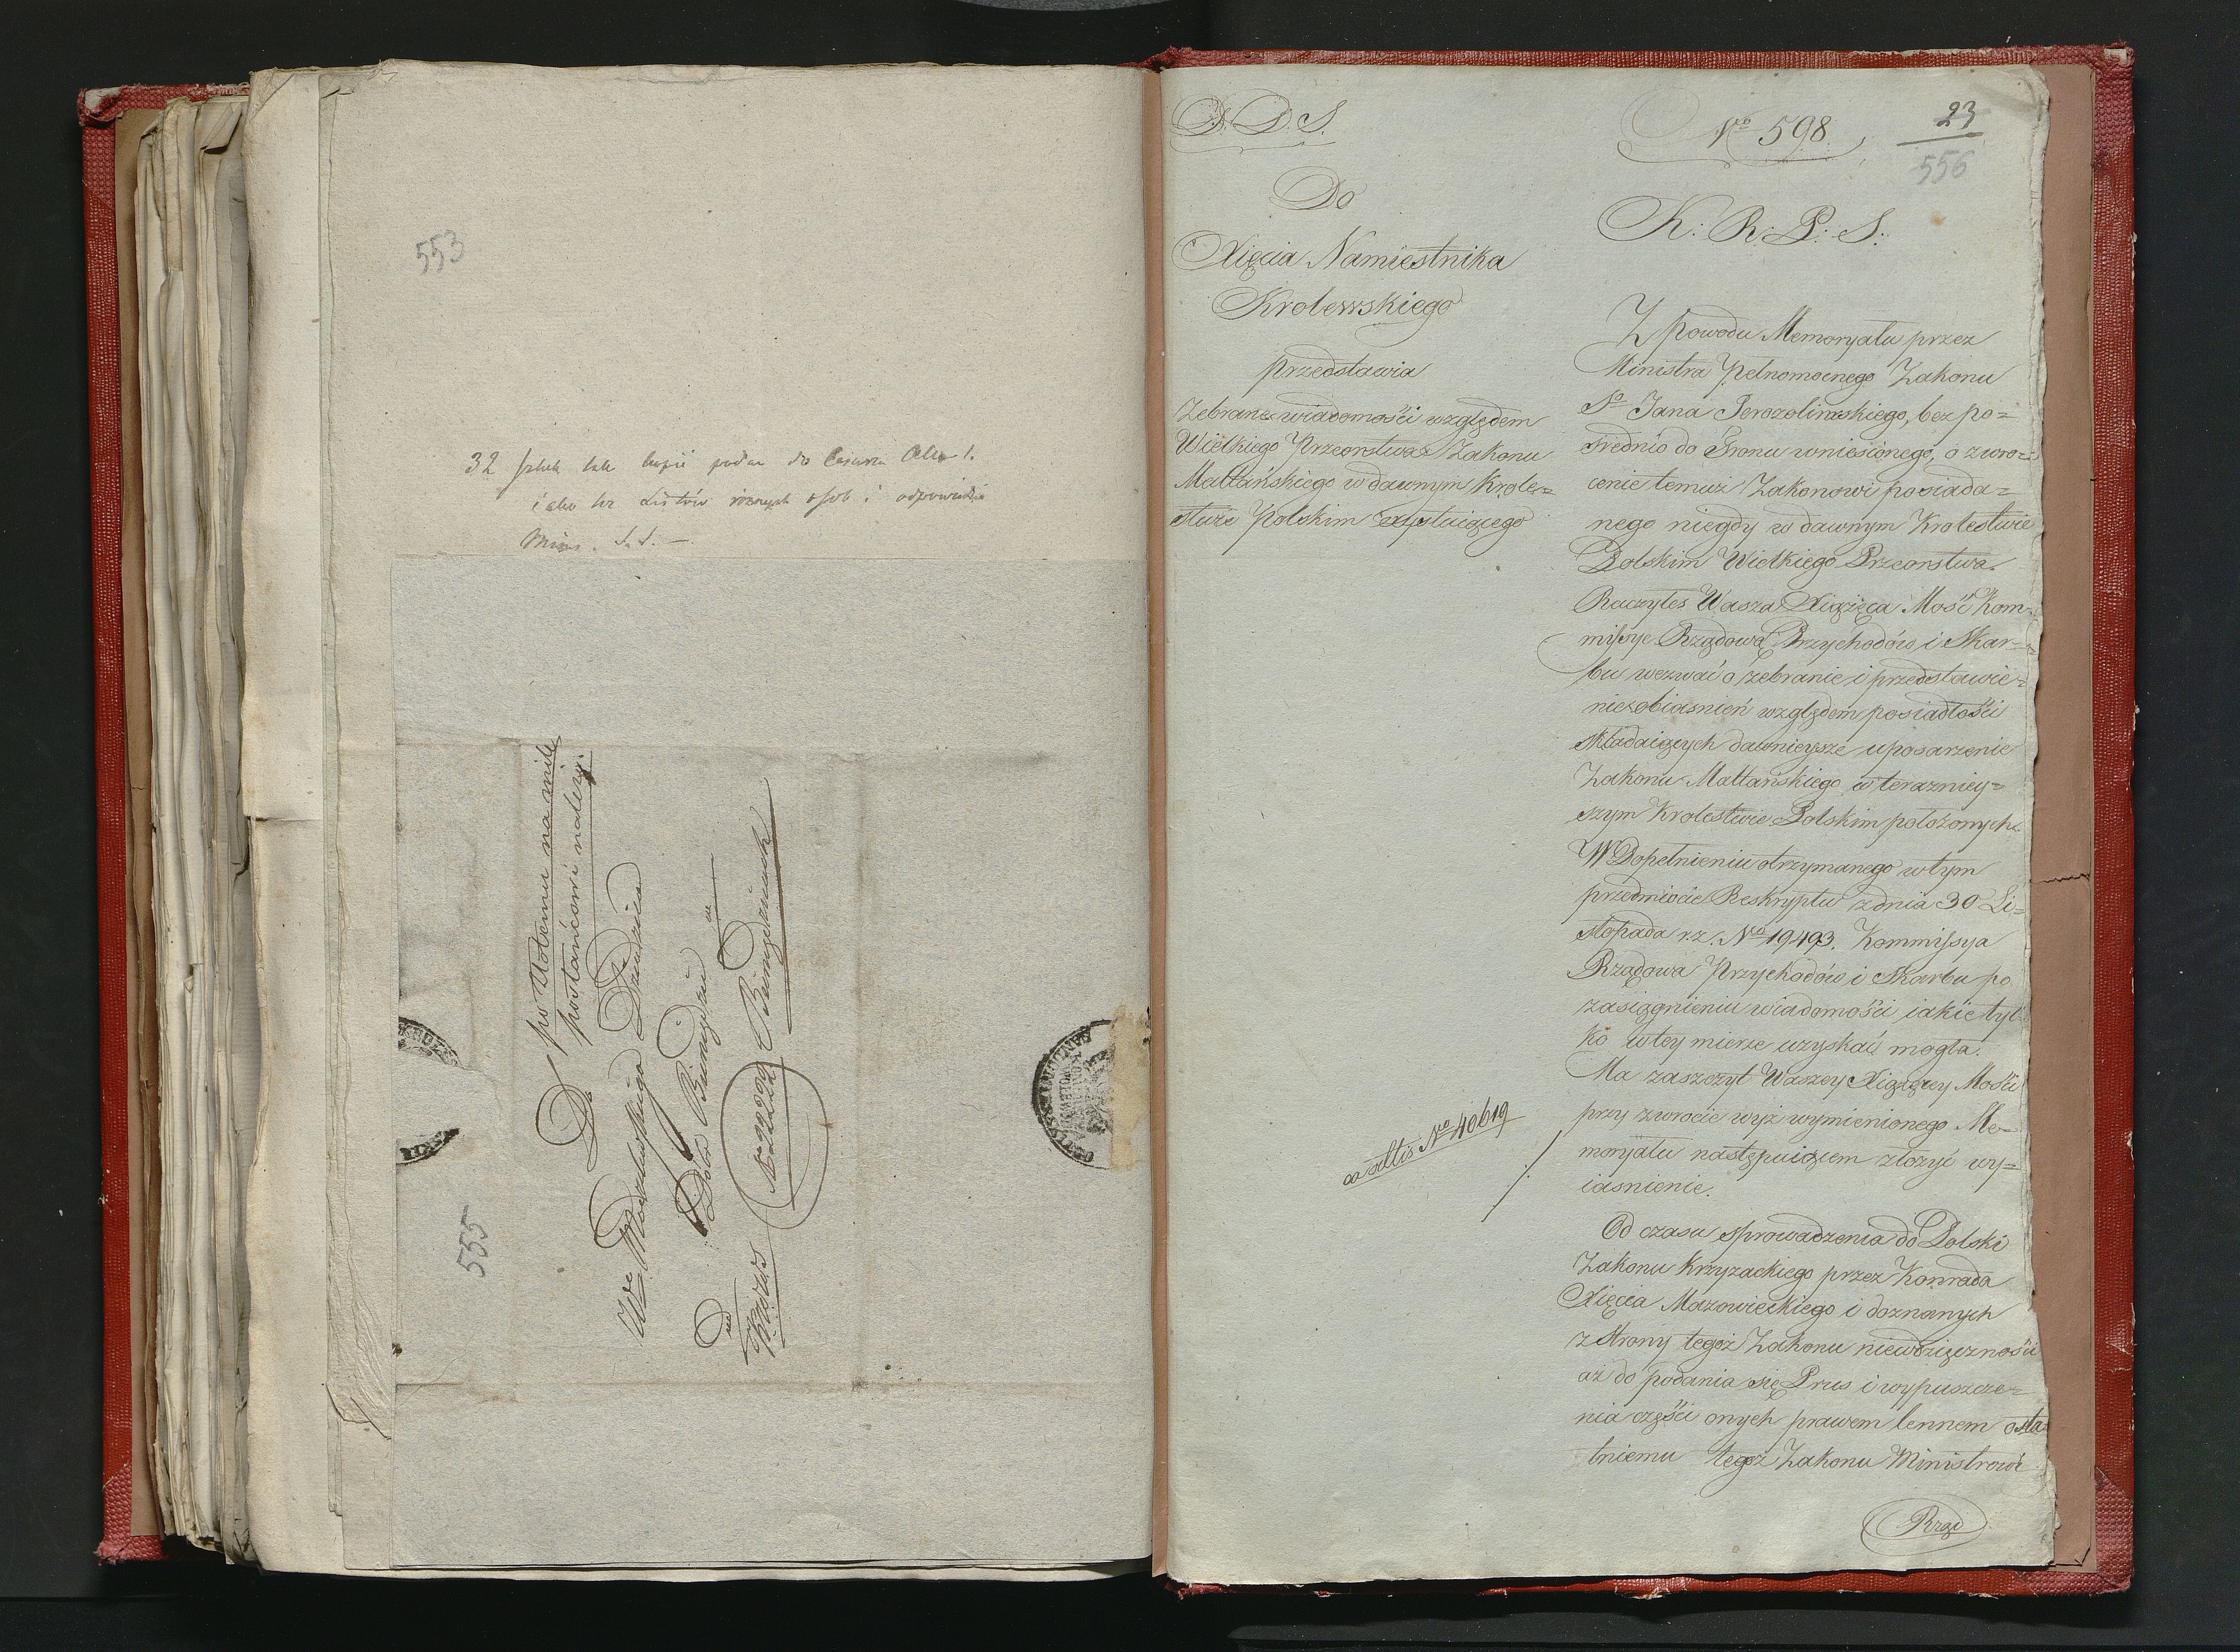 553
32 sztuk tak kopii podań do Cesarza Alex I.
iako też Listów różnych osób i odpowiedzi
Mins. S. S. —
po złotemu na milę
posłańcowi należy.
Do
We Modzelewskiego Dziedzica
Dóbr Biendzui
w
Biendziuch
No 22209
555
D. D. S.
Do
Xięcia Namiestnika
Krolewskiego
przedstawia
Zebrane wiadomości względem
Wielkiego Przeorstwa Zakonu
Maltańskiego w dawnym Krole=
stwie Polskim exystuiącego
ad altis No 40619
No 598.
23
556
K: R: P: S:
Z powodu Memoryału przez
Ministra Pełnomocnego Zakonu
So Jana Jerozolimskiego, bezpo=
srednio do Tronu wniesionego, o zwro=
cenie temuż Zakonowi posiada=
nego niegdy w dawnym Krolestwie
Polskim Wielkiego Przeorstwa.
Raczyłes Wasza Xiążęca Mość Kom=
missye Rządową Przychodów i Skar=
bu wezwać o zebranie i przedstawie=
nie obiasnień względem posiadłości
składaiących dawnieysze uposarzenie
Zakonu Maltańskiego w terazniey=
szym Krolestwie Polskim położonych.
W Dopełnieniu otrzymanego w tym
przedmiocie Reskryptu z dnia 30 Li=
stopada r.z. Nro 19493. Kommissya
Rządowa Przychodów i Skarbu po
zasiągnieniu wiadomości iakie tyl=
ko w tey mierze uzyskać mogła.
Ma zaszczyt Waszey Xiążęcey Mości
przy zwrocie wyż wymienionego Me=
moryału następuiącem złożyć wy=
iasnienie.
Od czasu sprowadzenia do Polski
Zakonu Krzyzackiego przez Konrada
Xięcia Mazowieckiego i doznanych
z strony tegoż Zakonu niewdzięczności
aż do podania się Prus i wypuszcze=
nia części onych prawem lennem osta=
tniemu tegoż Zakonu Ministrowi
Rząd